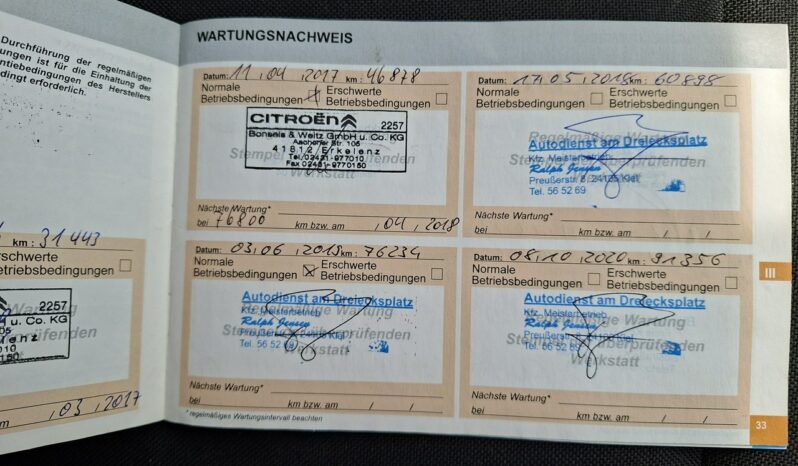 Durchführung der regelmäßigen
ungen ist für die Einhaltung der
ntiebedingungen des Herstellers
dingt erforderlich.
km: 31443
Erschwerte
etriebsbedingungen
2257
H u. Co. KG
05
lenz
010
0150
Wartung
fenden
03, 2017
WARTUNGSNACHWEIS
Datum: 11, 04, 2017 km: 46878
Normale Erschwerte
Betriebsbedingungen Betriebsbedingungen
CITROËN 2257
Bonsels & Weitz GmbH u. Co. KG
Aachener Str. 105
41812 Erkelenz
Tel. 02431-977010
Fax 02431-970150
Nächste Wartung*
bei 76800 km bzw. am , 04, 2018
Datum: 17, 05, 2018 km: 60898
Normale Erschwerte
Betriebsbedingungen Betriebsbedingungen
Regelmäßige Wartung
Autodienst am Dreiecksplatz
Kfz. Meisterbetrieb
Ralph Jensen
Preußerstr. 8, 24105 Kiel
Tel. 56 52 69
Nächste Wartung*
bei km bzw. am / /
Datum: 03, 06, 2019 km: 76234
Normale Erschwerte
Betriebsbedingungen Betriebsbedingungen
Autodienst am Dreiecksplatz
Kfz. Meisterbetrieb
Ralph Jensen
Tel. 56 52 69
Werkstatt
Nächste Wartung*
bei km bzw. am / /
* regelmäßiges Wartungsintervall beachten
Datum: 08, 10, 2020 km: 91356
Normale Erschwerte
Betriebsbedingungen Betriebsbedingungen
Autodienst am Dreiecksplatz
Regelmäßige Wartung
Kfz. Meisterbetrieb
Ralph Jensen
Tel. 56 52 69
Werkstatt
Nächste Wartung*
bei km bzw. am / /
III
33